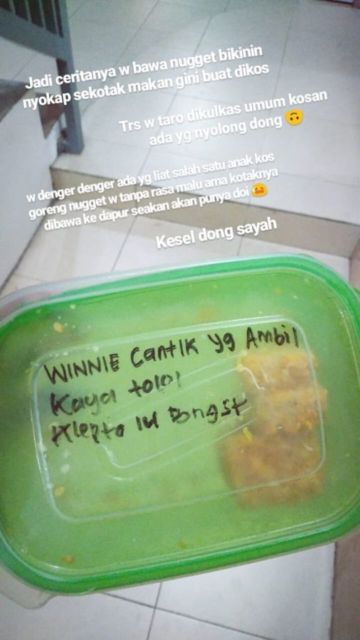 Jadi ceritanya w bawa nugget bikinin
nyokap sekotak makan gini buat dikos
Trs w taro dikulkas umum kosan
ada yg nyolong dong 🙃
w denger denger ada yg liat salah satu anak kos
goreng nugget w tanpa rasa malu ama kotaknya
dibawa ke dapur seakan akan punya doi 😡
Kesel dong sayah
WINNIE Cantik yg Ambil
Kaya tolol
Klepto lu